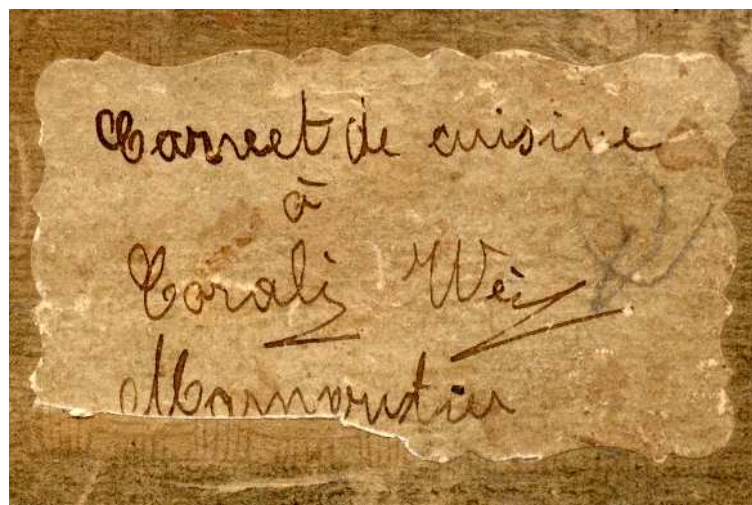 Carnet de cuisine
à
Coraly Weil
Marmoutier